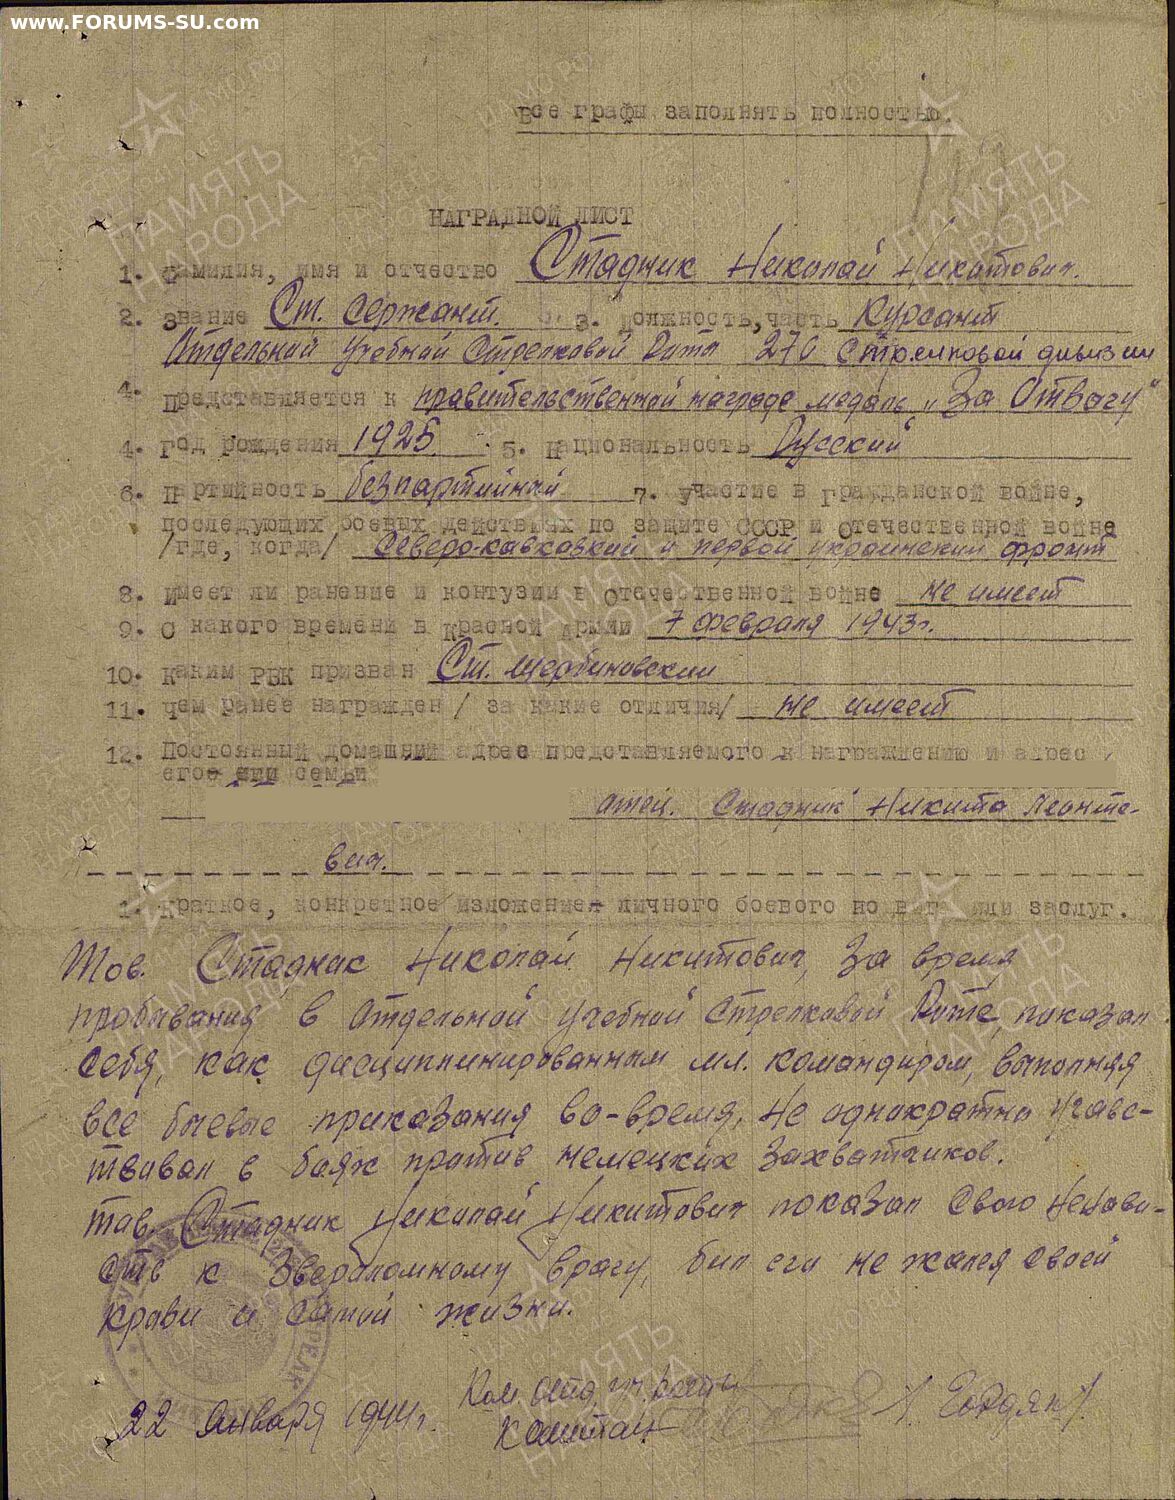 www.FORUMS-SU.com
Все графы заполнять полностью.
НАГРАДНОЙ ЛИСТ
1. Фамилия, имя и отчество Стадник Николай Никитович.
2. Звание Ст. Сержант. 3. Должность, часть Курсант
Отдельной Учебной Стрелковой Роты 276 Стрелковой дивизии
4. Представляется к правительственной награде медаль „За Отвагу"
4. Год рождения 1925 5. Национальность Русский
6. Партийность безпартийный 7. Участие в Гражданской войне,
последующих боевых действиях по защите СССР и Отечественной войне
/где, когда/ Северо-кавказкий и первой украинский фронт
8. Имеет ли ранение и контузии в Отечественной войне не имеет
9. С какого времени в Красной Армии 7 февраля 1943г.
10. Каким РВК призван Ст. Щербиновский
11. Чем ранее награжден / за какие отличия/ не имеет
12. Постоянный домашний адрес представляемого к награждению и адрес
его семьи
отец. Стадник Никита Леонте-
вич.
1. Краткое, конкретное изложение личного боевого или заслуг.
Тов. Стадник Николай Никитович, За время
пробывания в Отдельной Учебной Стрелковой Роте, показал
себя, как дисциплинированным мл. командиром, выполняя
все боевые приказания во-время, Не однократно учавс-
твовал в боях против немецких захватчиков.
тов. Стадник Николай Никитович показал Свою Ненави-
сть к Зверопомному врагу, бил его не жалея Своей
крови и самой жизни.
22 Января 1944г. Ком. отд. уч. роты
Капитан
ПАМЯТЬ НАРОДА